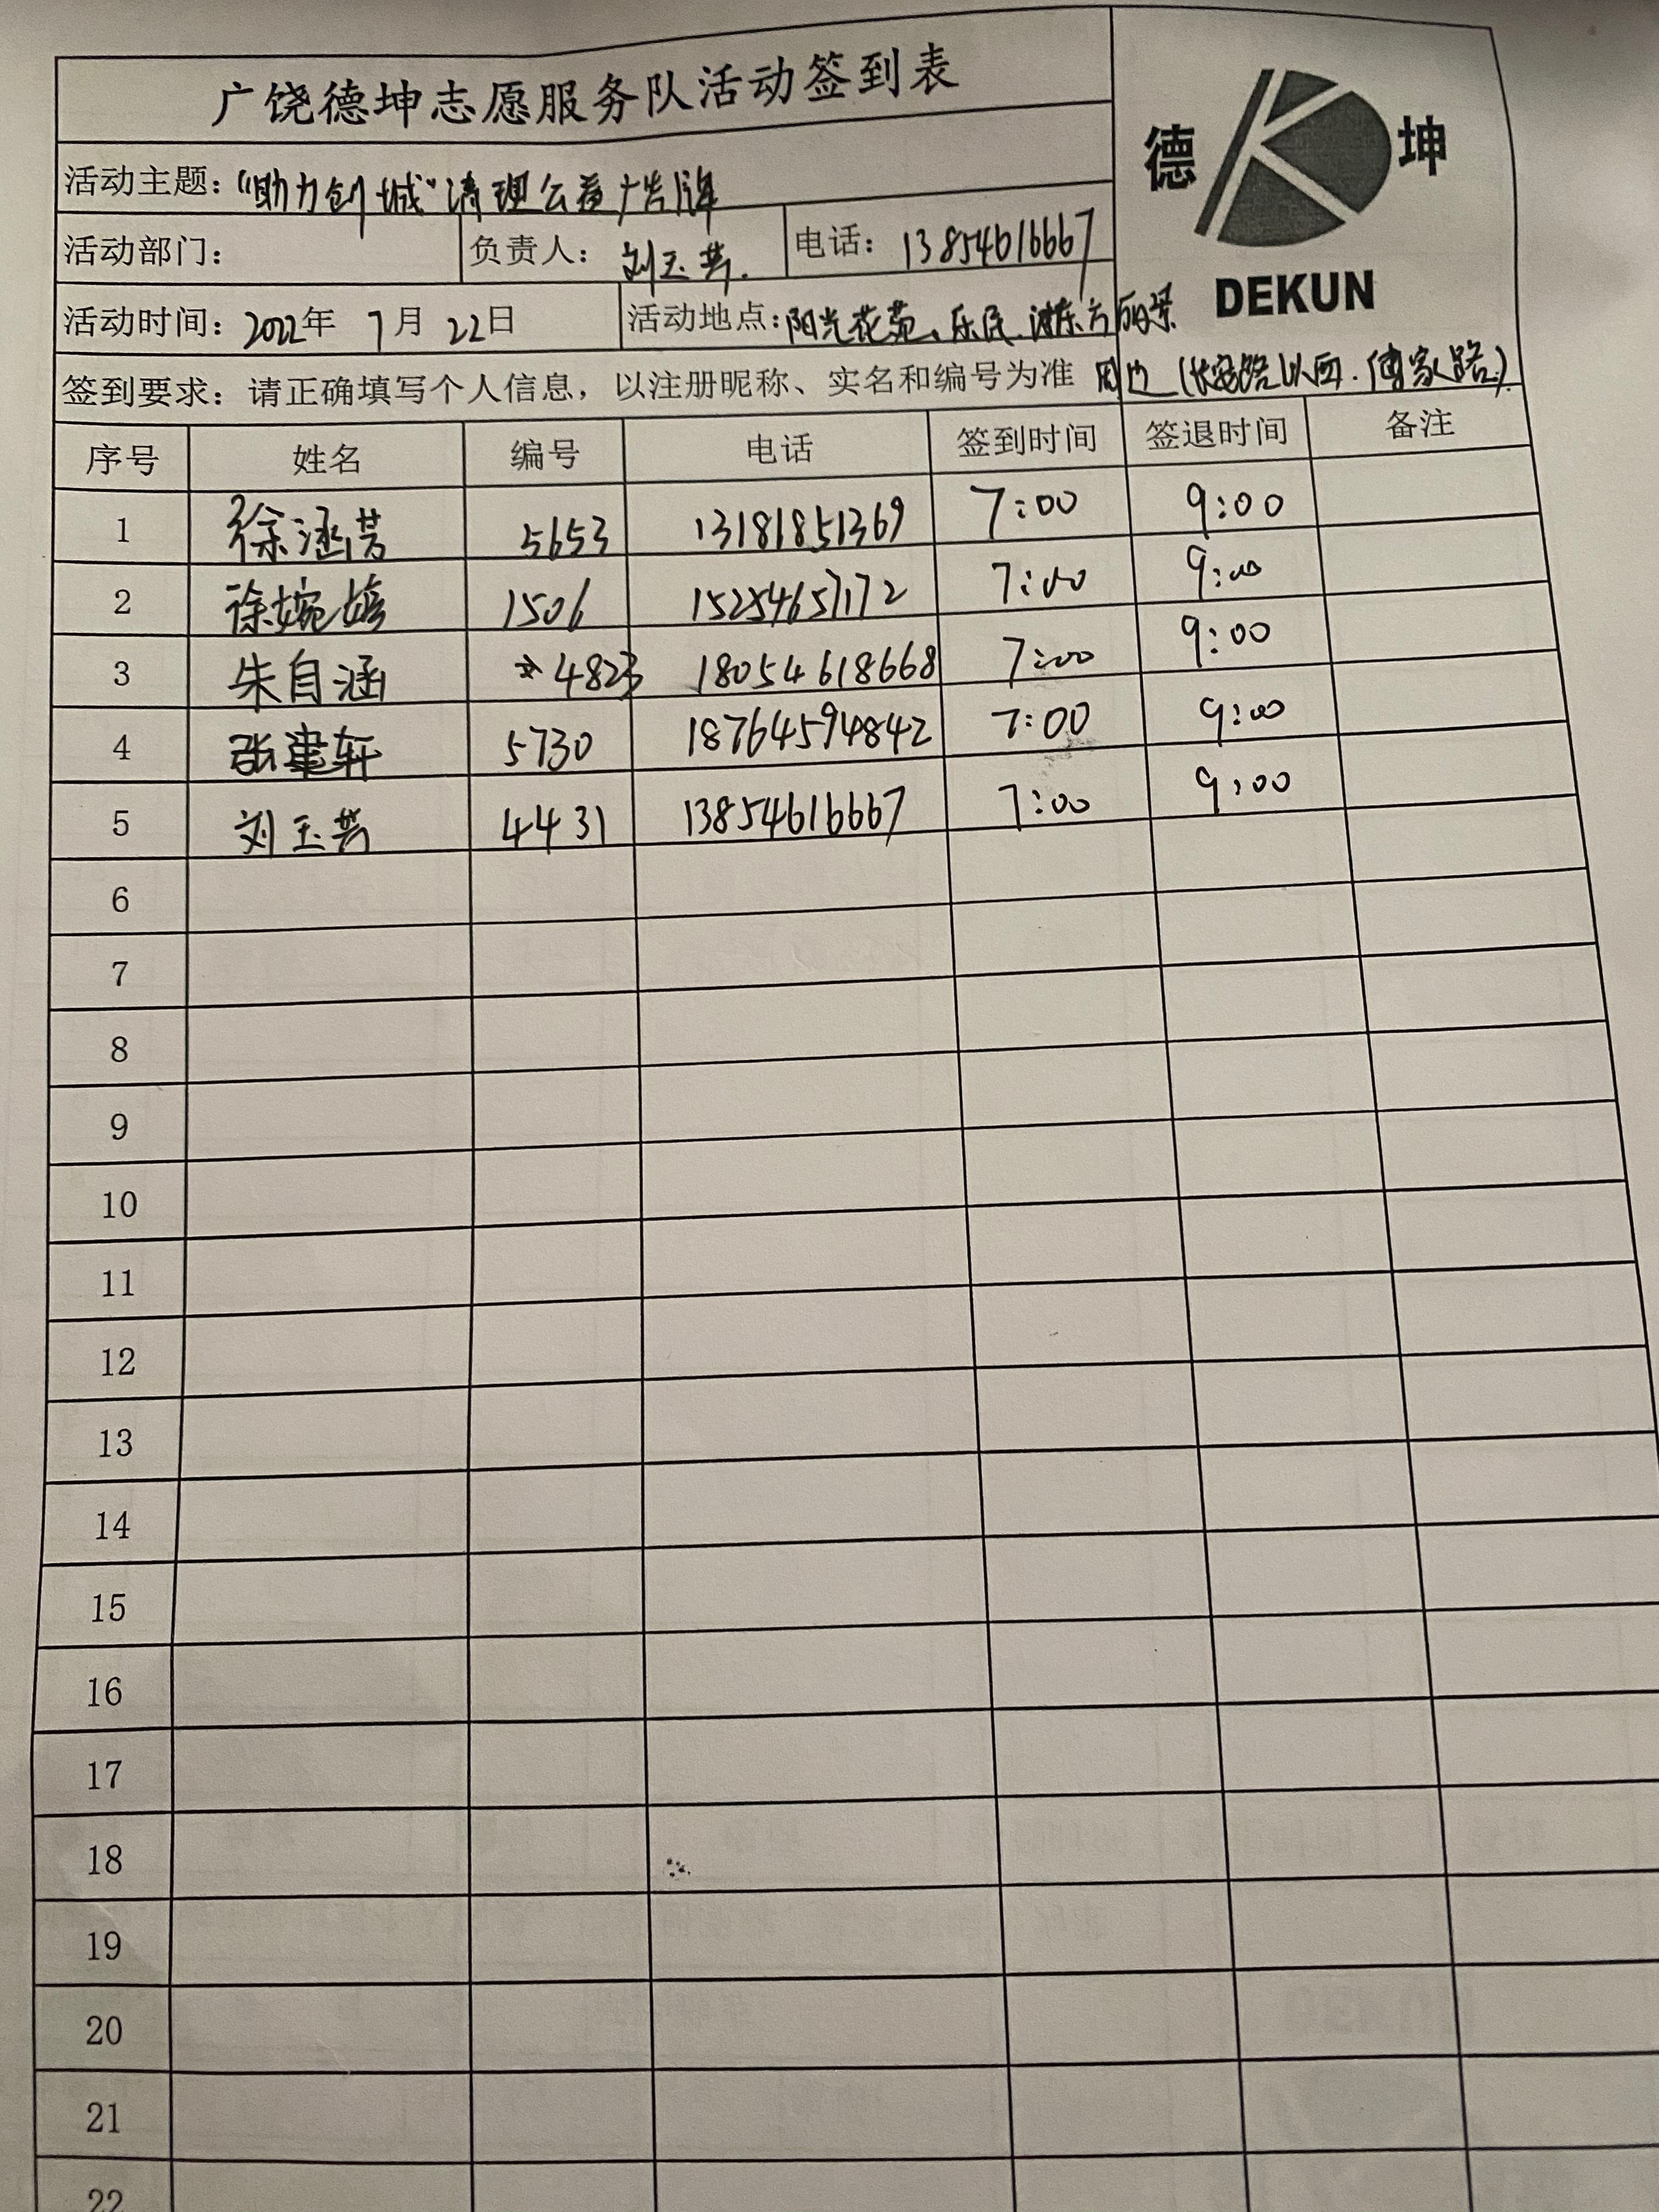 广饶德坤志愿服务队活动签到表
德 坤
DEKUN
活动主题：“助力创城”清理公益广告牌
活动部门： 负责人：刘玉芸. 电话：13854616667
活动时间：2022年 7月 22日 活动地点：阳光花苑、乐民、 东方丽景
签到要求：请正确填写个人信息，以注册昵称、实名和编号为准 周边（长安路以西.傅家路）
序号 姓名 编号 电话 签到时间 签退时间 备注
1 徐涵芸 5653 13181851369 7:00 9:00
2 徐婉婷 1506 15254657172 7:00 9:00
3 朱自涵 4823 18054618668 7:00 9:00
4 张建轩 5730 18764594842 7:00 9:00
5 刘玉芸 4431 13854616667 7:00 9:00
6
7
8
9
10
11
12
13
14
15
16
17
18
19
20
21
22